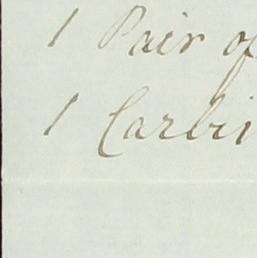 1 Pair of
1 Carbi